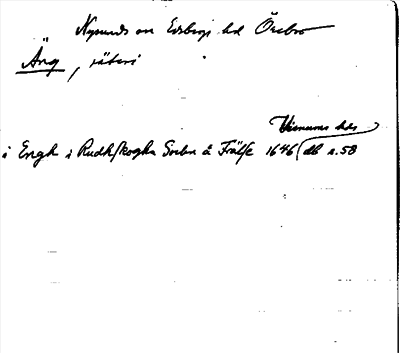 Nysunds sn Edsbergs hd Örebro
Äng, säteri
Visnums hds
i Engh i Rudhskogha Sochn á Frälse 1646 (db s. 58